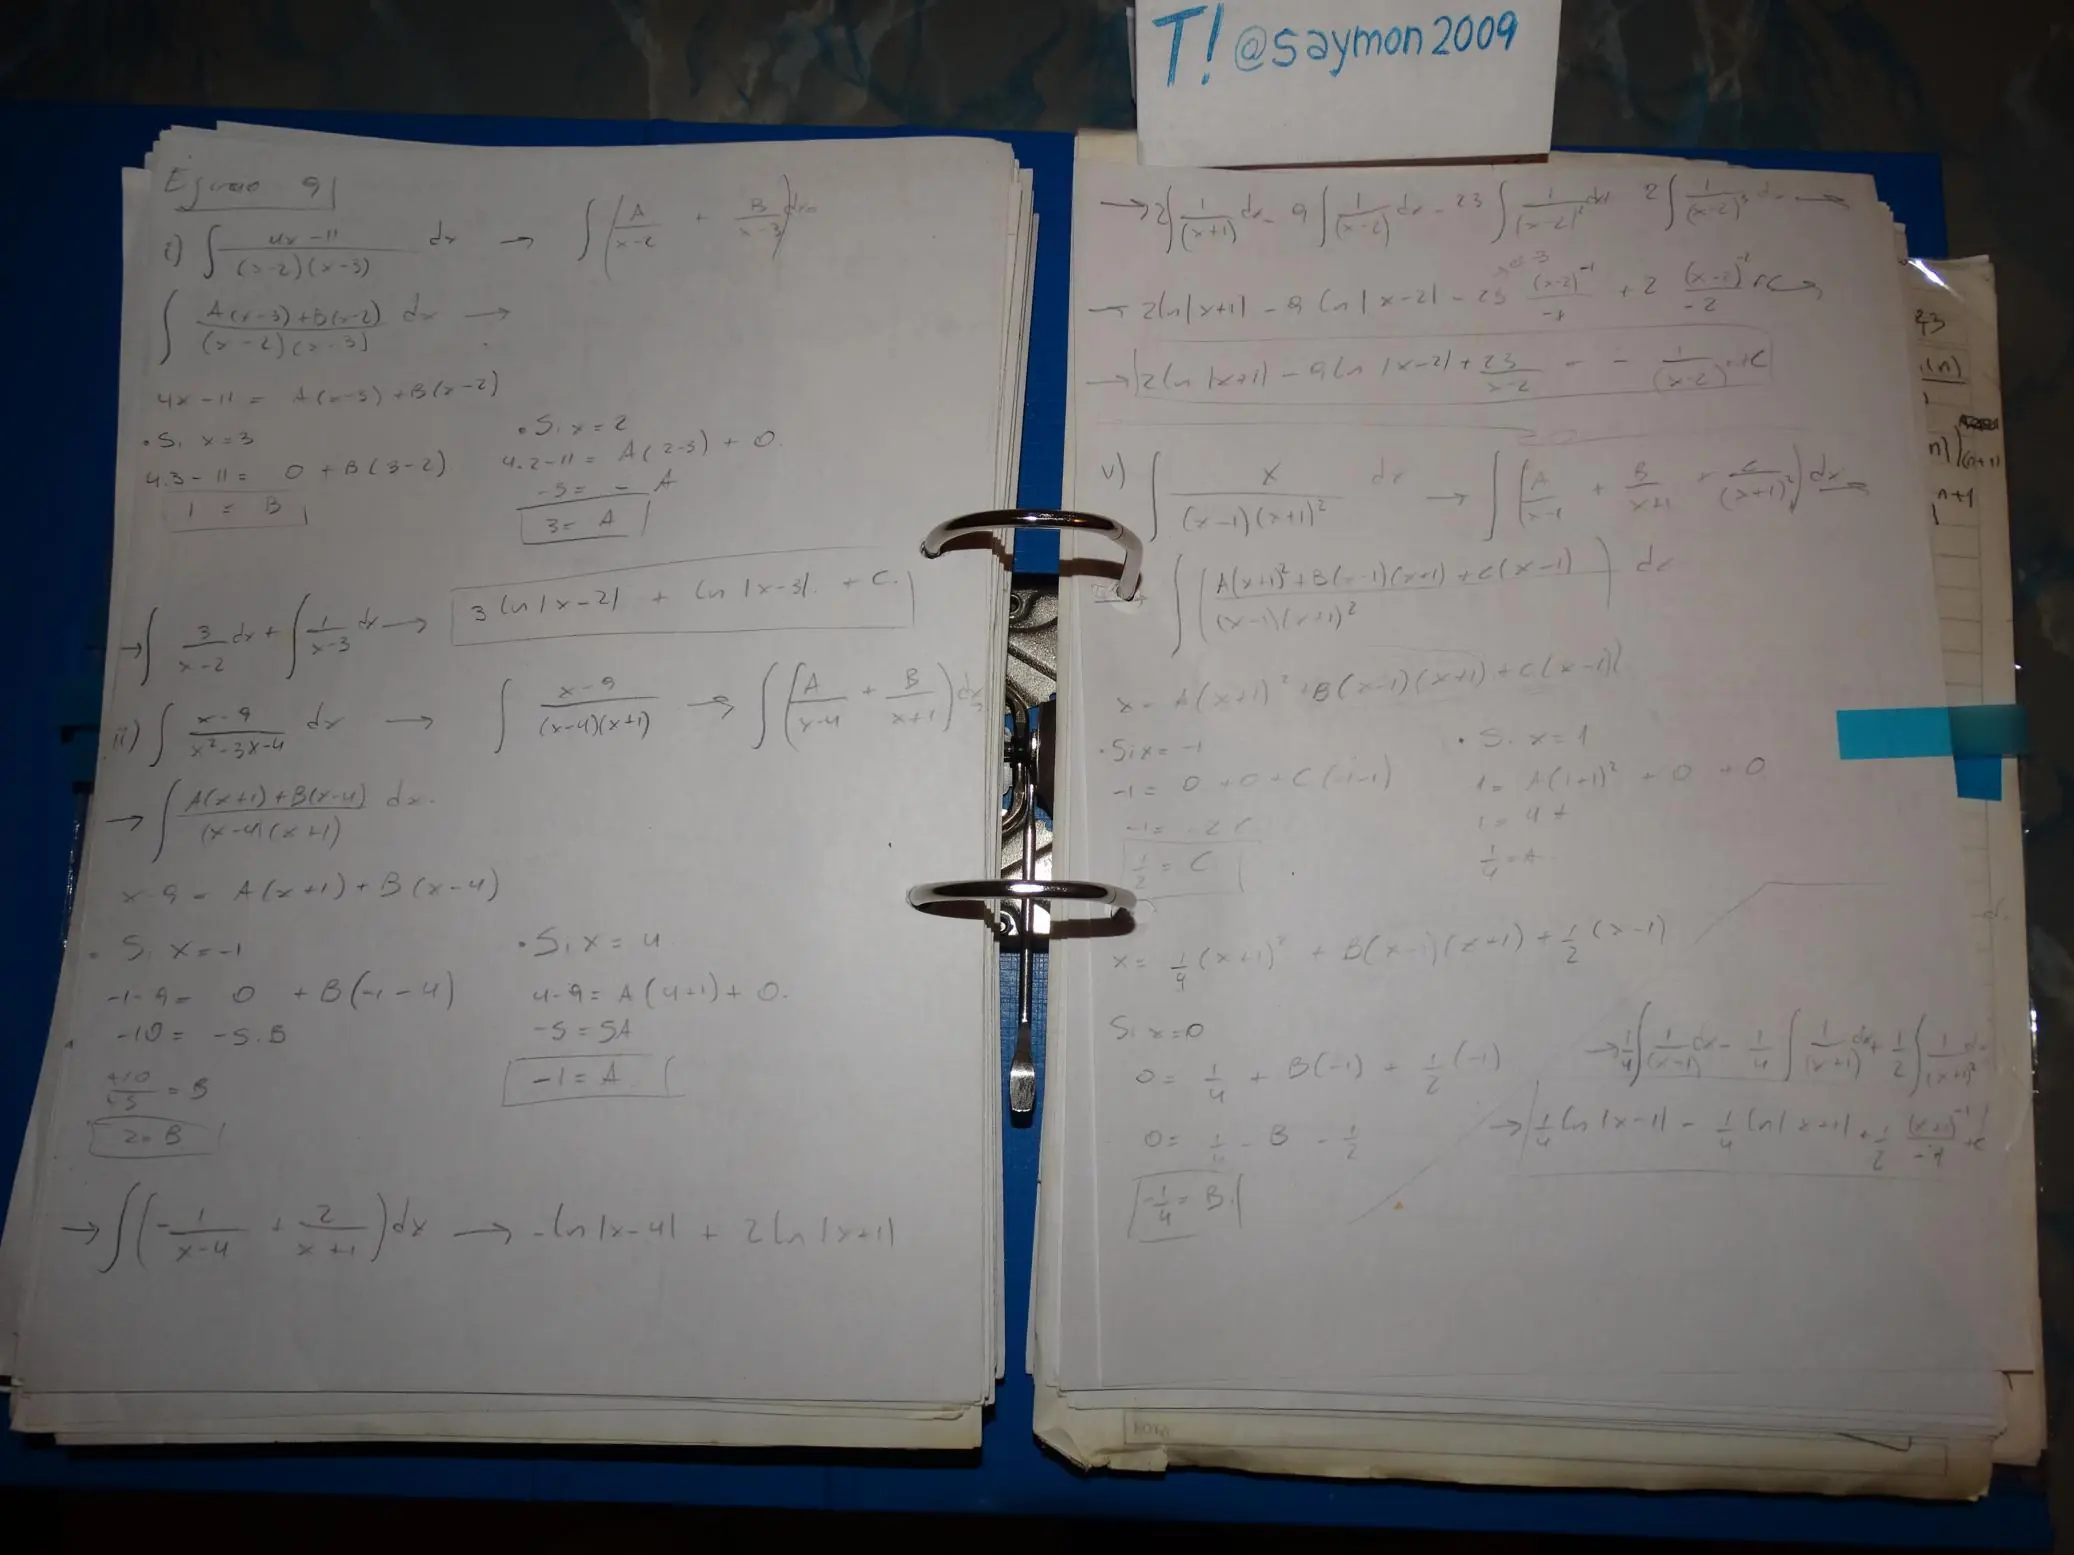 T! @saymon2009
9|
i) ∫ 4x-11 / (x-2)(x-3) dx → ∫ ( A/x-2 + B/x-3 ) dx =
∫ A(x-3)+B(x-2) / (x-2)(x-3) dx →
4x-11 = A(x-3)+B(x-2)
• Si x=3
4.3-11= 0 + B(3-2)
1 = B
• Si x=2
4.2-11= A(2-3) + 0.
-3= - A
3= A
→ ∫ 3/x-2 dx + ∫ 1/x-3 dx → 3 ln|x-2| + ln|x-3|. + C.
ii) ∫ x-9 / x²-3x-4 dx → ∫ x-9 / (x-4)(x+1) → ∫ ( A/x-4 + B/x+1 ) dx
→ ∫ A(x+1)+B(x-4) / (x-4)(x+1) dx.
x-9= A(x+1)+B(x-4)
• Si x=-1
-1-9= 0 +B(-1-4)
-10= -5.B
2=B
• Si x= 4
4-9= A(4+1)+ 0.
-5=5A
-1=A
→ ∫ ( -1/x-4 + 2/x+1 ) dx → -ln|x-4| + 2ln|x+1|
→ 2∫ 1/(x+1) dx - 9∫ 1/(x-2) dx - 23 ∫ 1/(x-2)² dx 2∫ 1/(x-2)³
→ 2ln|x+1| - 9 ln|x-2| - 23 (x-2)⁻¹/-1 + 2
→ 2ln|x+1| - 9ln|x-2| + 23/x-2 - - +C
v) ∫ x / (x-1)(x+1)² dx → ∫ ( A/x-1 + B/x+1 + C/(x+1)² ) dx
∫ ( A(x+1)²+B(x-1)(x+1)+C(x-1) / (x-1)(x+1)² ) dx
x= A(x+1)²+B(x-1)(x+1)+C(x-1)
• Si x= -1
-1= 0 +0+C(-1-1)
-1= -2C
1/2 = C
• Si x=1
1= A(1+1)² + 0 +0
1= 4A
1/4 =A
x= 1/4 (x+1)² + B(x-1)(x+1)+ 1/2 (x-1)
Si x=0
0= 1/4 + B(-1) + 1/2 (-1)
0= 1/4 - B - 1/2
-1/4 = B.
→ 1/4 ∫ 1/(x-1) dx - 1/4 ∫ 1/(x+1) dx + 1/2 ∫ 1/(x+1)²
→ 1/4 ln|x-1| - 1/4 ln|x+1| + 1/2 (x+1)⁻¹/-1 +C
(n)
n)
(n+1)
n+1